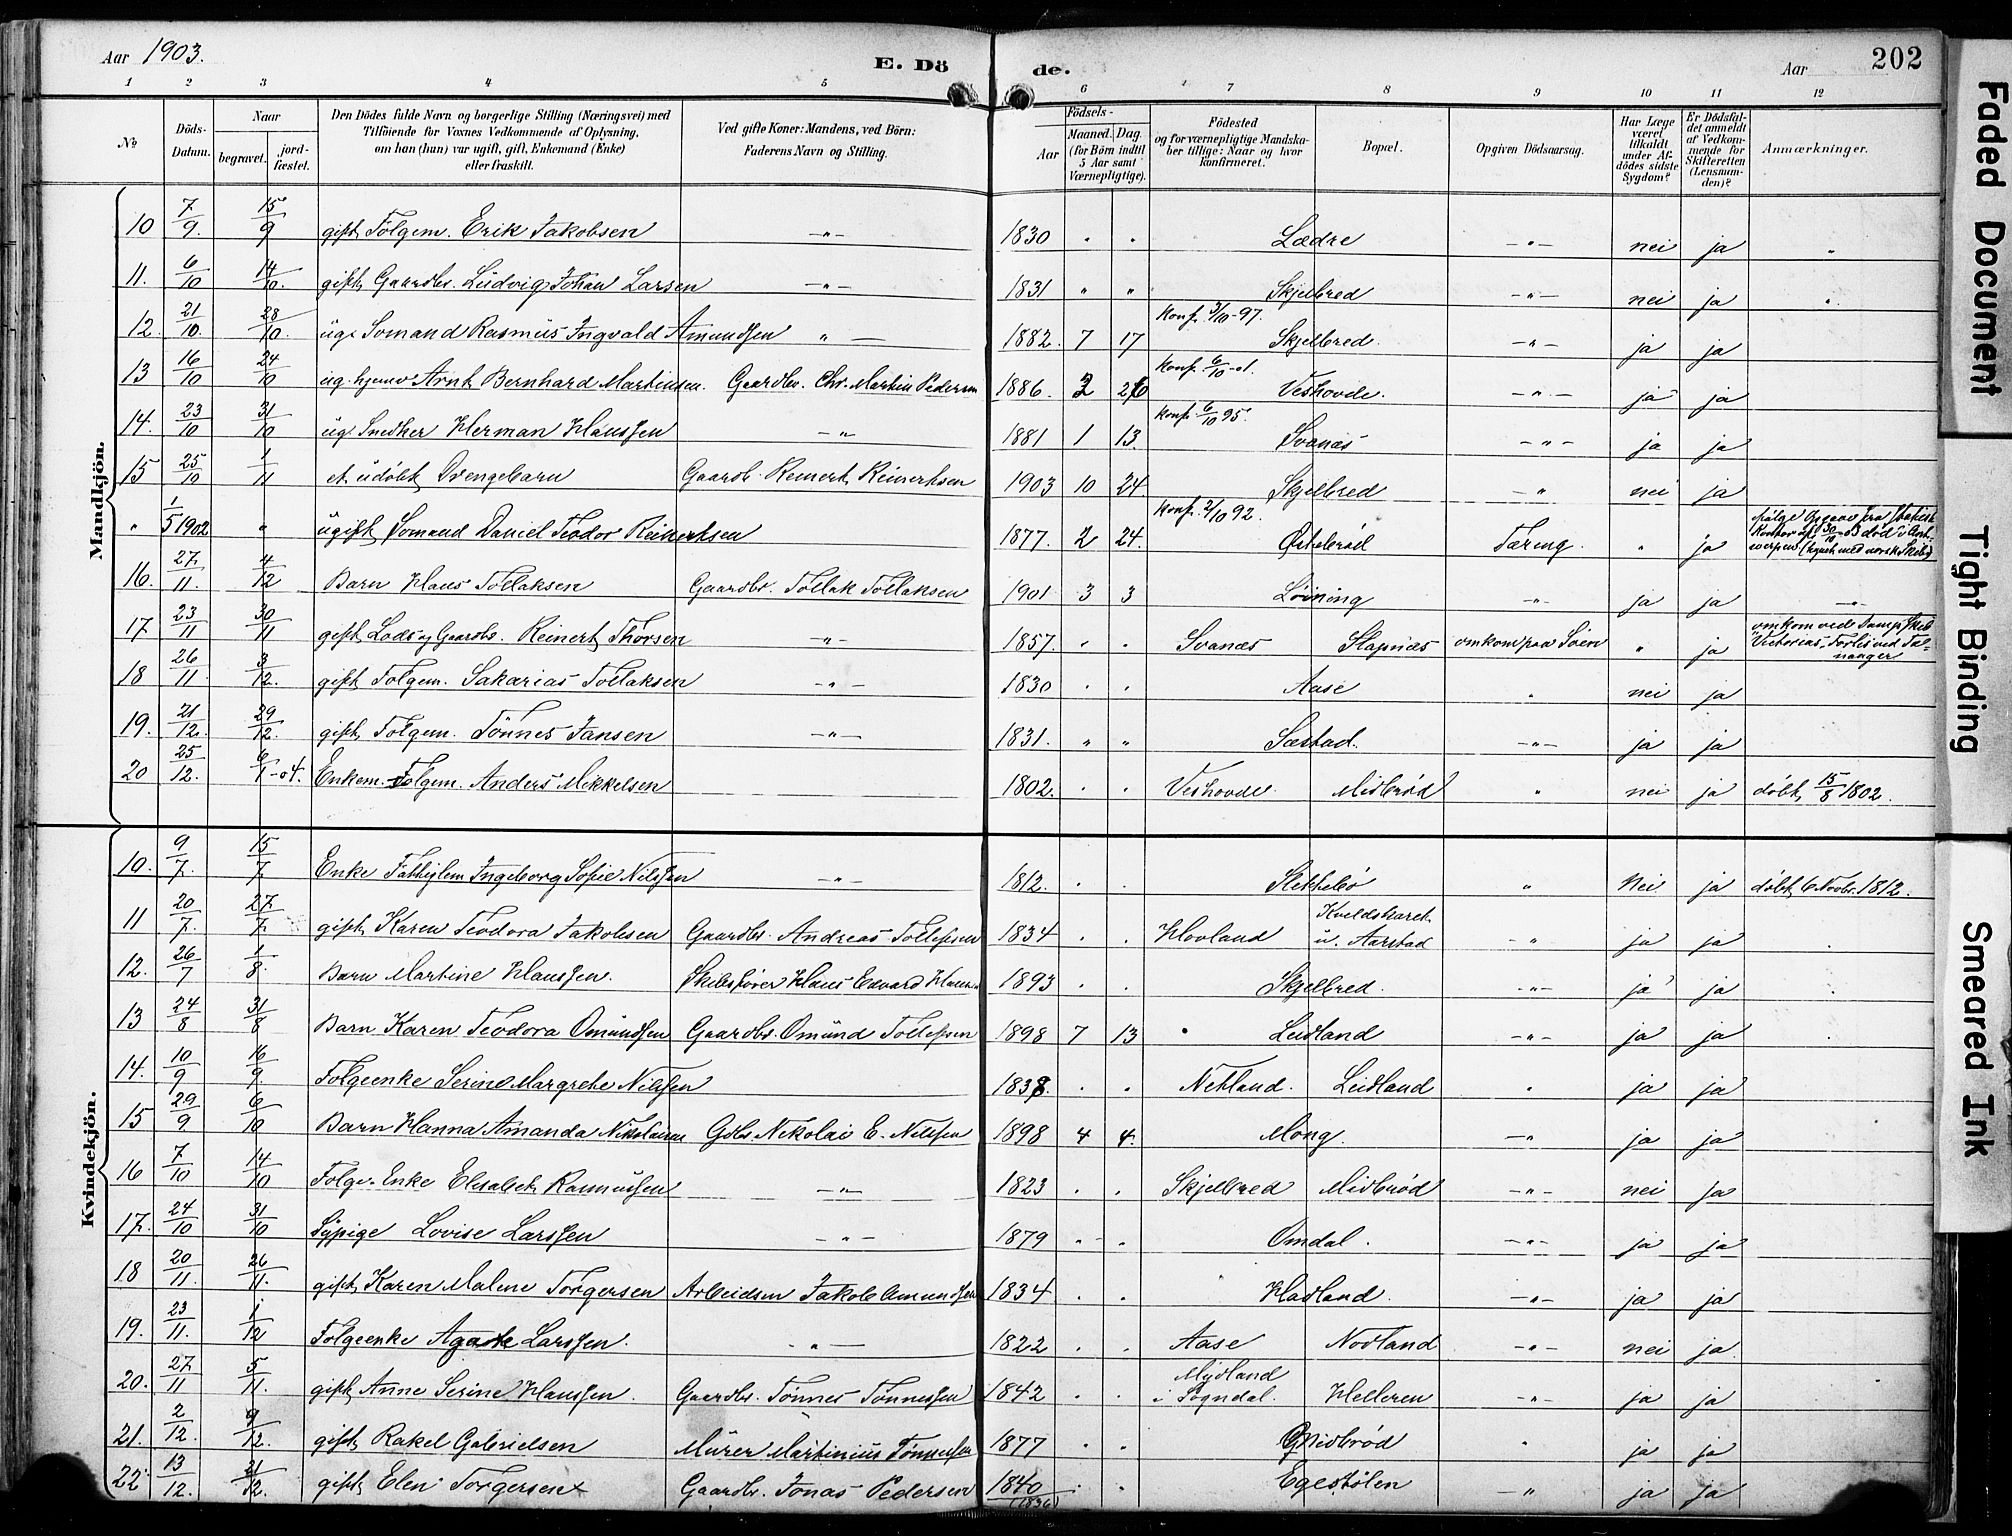 Aar 1903. E. Dö de. Aar 202
1 2 3 4 5 6 7 8 9 10 11 12
№ Döds-Datum. Naar begravet. jord-fæstet. Den Dödes fulde Navn og borgerlige Stilling (Næringsvei) med Tilföiende for Voxnes Vedkommende af Oplysning, om han (hun) var ugift, gift, Enkemand (Enke) eller fraskilt. Ved gifte Koner: Mandens, ved Börn: Faderens Navn og Stilling. Födsels- Aar Maaned. Dag. (for Börn indtil 5 Aar samt Værnepligtige). Födested og for værnepligtige Mandska-ber tillige: Naar og hvor konfirmeret. Bopæl. Opgiven Dödsaarsag. Har Læge været tilkaldt under Af-dödes sidste Sygdom? Er Dödsfal-det anmeldt af Vedkom-mende for Skifteretten (Lensman-den)? Anmærkninger.
Mandkjön.
10 7/9 15/9 gift Folgem. Erik Jakobsen -"- 1830 " " Lædre -"- nei ja "
11. 6/10 14/10. gift Gaardbr. Ludvig Johan Larsen -"- 1831 " " Skjelbred -"- nei ja "
12. 21/10. 28/10. ug. Sømand Rasmus Ingvald Amundsen "- 1882. 7 17 Konf. 3/10-97. Skjelbred. -"- ja ja
13 16/10 24/10 ug. hjemv Arnt Bernhard Martinsen. Gaardbr. Chr. Martin Pedersen 1886. 3 26 Konf. 6/10-01. Veshovde. -"- ja ja
14. 23/10 31/10 ug. Snedker Herman Hanssen -"- 1881 1 13. Konf. 6/10 95. Svanes -"- ja ja
15 25/10 1/11 et udøbt Drengebarn Gaardb. Reinert Reinertsen 1903 10 24. Skjelbred -"- nei ja
" 1/5 1902 " ugift Sømand Daniel Teodor Reinertsen 1877. 2 24. Konf. 2/10 92. Østebrød Tæring. " ja ifølge Opgave fra statist. Kontor af 30/10-03 død i Ant-werpen (hjemh med norsk Skib)
16. 27/11. 4/12 Barn Hans Tollaksen Gaardbr. Tollak Tollaksen 1901 3 3 Løining -"- ja ja -"-
17 23/11 30/11 gift Lods og Gaardbr. Reinert Thorsen -"- 1857. " " Svanæs Slapnæs omkom paa Søen " ja omkom ved Damp.Skib "Victorias" Forlis ved Ta-nanger
18 26/11. 3/12. gift Folgem. Sakarias Tollaksen -"- 1830 " " Aase " nei ja
19. 21/12. 29/12. gift Folgem. Tönnes Jansen -"- 1831. " " Sæstad. -"- ja ja
20 25/12. 6/1-04. Enkem. Folgem. Anders Mikkelsen 1802. " " Veshovde. Midbrød " nei ja døbt 15/8 1802.
Kvindekjön.
10. 9/7. 15/7 Enke Fattiglem Ingeborg Sofie Nilssen -"- 1812. " " Slettebø " nei ja døbt 6 Novbr. 1812.
11 20/7. 27/7. gift Karen Teodora Jakobsen Gaardbr. Andreas Tollefsen 1834 " " Hovland Kveldsharet u. Aarstad " ja ja
12. 26/7 1/8. Barn Martine Hanssen. Skibsfører Hans Edvard Hansen 1893 " " Skjelbred. -"- ja ja
13 24/8 31/8 Barn Karen Teodora Omundsen Gaardbr. Omund Tollefsen 1898 7 13 " Leidland -"- ja ja
14. 10/9 16/9. Folgeenke Serine Margrethe Nilssen 1838. " " Netland. Leidland " ja ja
15 29/9 6/10 Barn Hanna Amanda Nikolaisen Gdbr. Nikolai E. Nilssen 1898 4 4. Mong. -"- ja ja
16 7/10 14/10 Folge-Enke Elisabet Rasmussen -"- 1823 " " Skjelbred Midbrød -"- nei ja
17. 24/10 31/10 Sypige Lovise Larssen -"- 1879 " " Omdal. -"- ja ja
18 20/11. 26/11. gift Karen Malene Torgersen Arbeidsm Jakob Amundsen 1834 " " Hadland. -"- ja ja
19. 23/11. 1/12 Folgeenke Agate Larssen. "- 1822 " " Aase Nodland -"- nei ja
20. 27/11 5/11. gift Anne Serine Hanssen. Gaardbr. Tönnes Tönnessen 1842 " " Mydland i Sogndal. Helleren -"- ja ja
21. 2/12. 9/12. gift Rakel Gabrielsen Murer Martinius Tønnesen 1877 " " Midbrød " ja ja
22 13/12. 21/12. gift Elen Torgersen x Gaardbr. Jonas Pedersen 1840 (1836) " " Egestølen -"- ja ja
Faded Document
Tight Binding
Smeared Ink